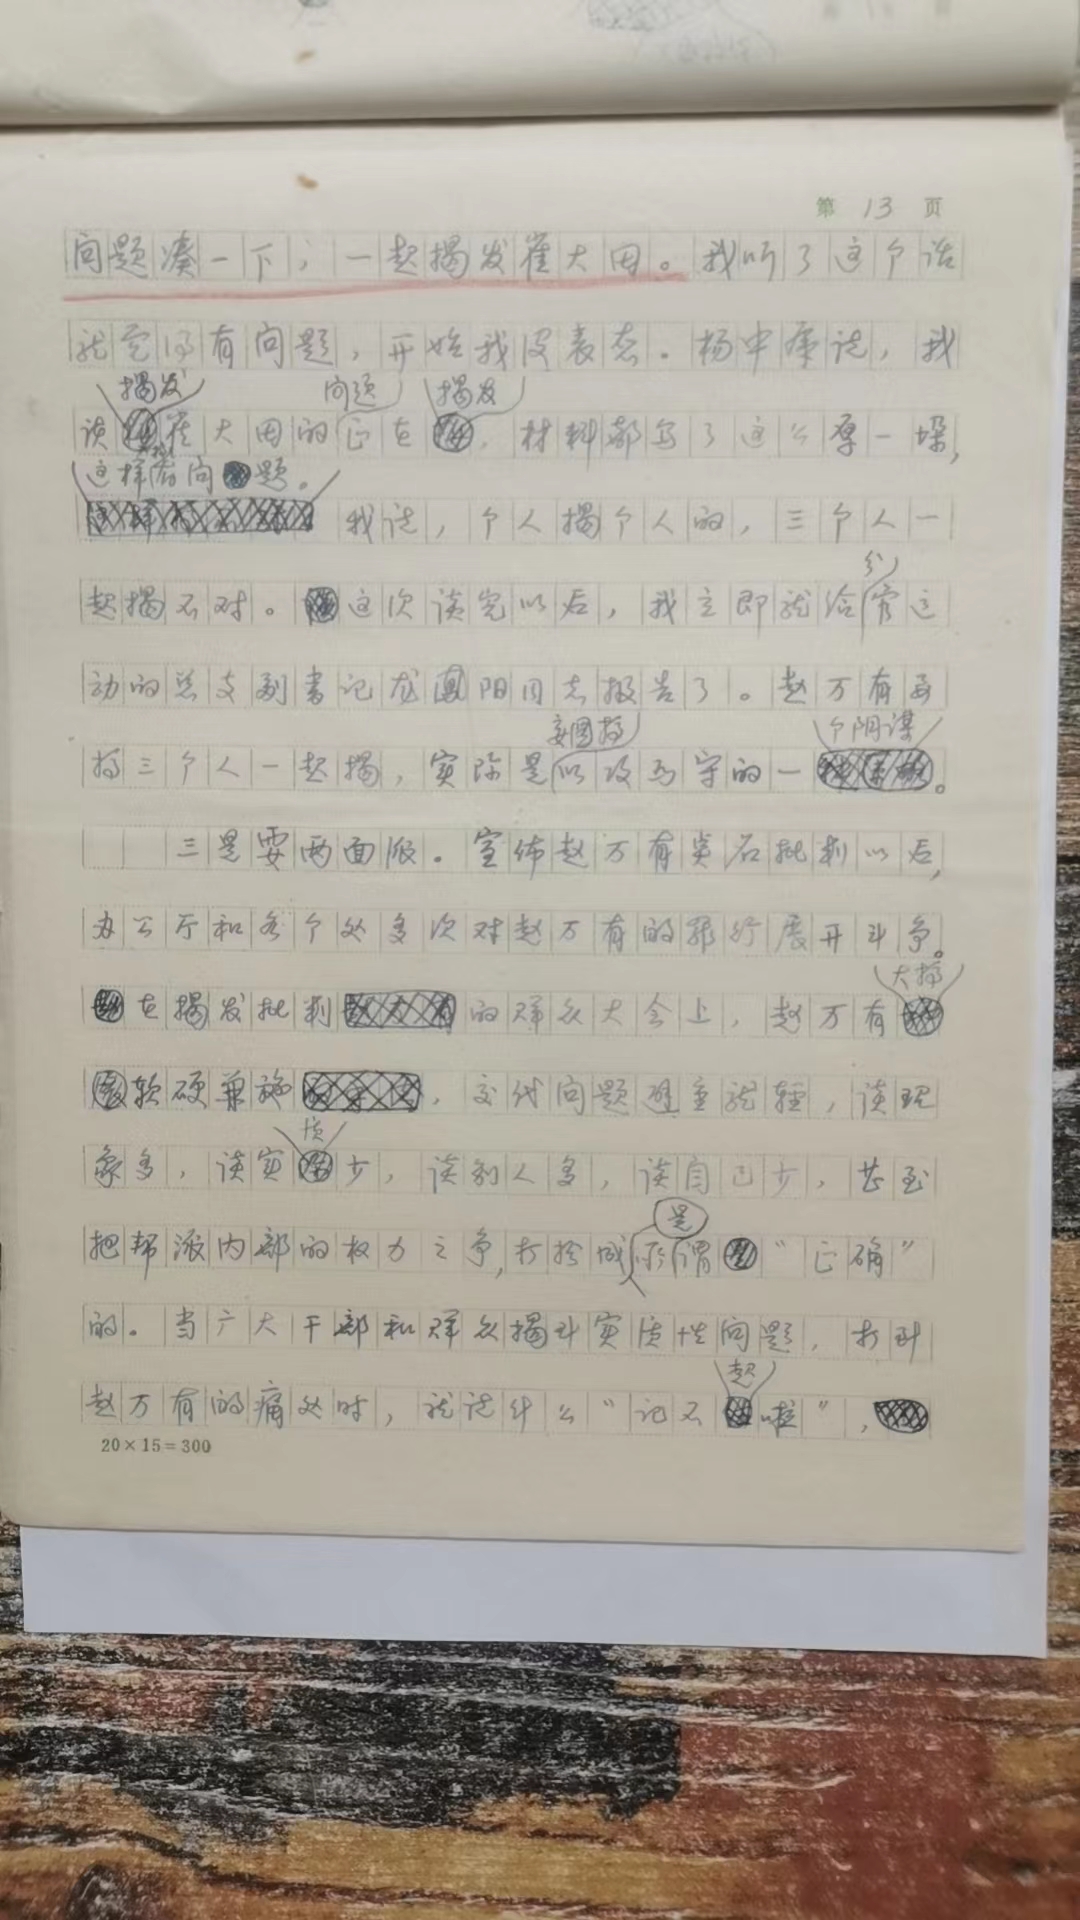 第 13 页
问题凑一下；一起揭发崔大田。我听了这个话
就觉得有问题，开始我没表态。杨中康说，我
揭发 问题 揭发
该崔大田的正在，材料都写了这么厚一垛，
这样有问题。
我说，个人揭个人的，三个人一
分
起揭不对。这次谈完以后，我立即就给管运
动的总支副书记龙凤阳同志报告了。赵万有要
妄图搞 个阴谋
搞三个人一起揭，实际是以攻为守的一。
三是耍两面派。宣布赵万有党内批判以后，
办公厅和各个处多次对赵万有的罪行展开斗争。
大搞
在揭发批判的群众大会上，赵万有
软硬兼施，交代问题避重就轻，谈现
质
象多，谈实少，谈别人多，谈自己少，甚至
是
把帮派内部的权力之争，打扮成所谓“正确”
的。当广大干部和群众揭到实质性问题，打到
起
赵万有的痛处时，就说什么“记不啦”，
20×15=300